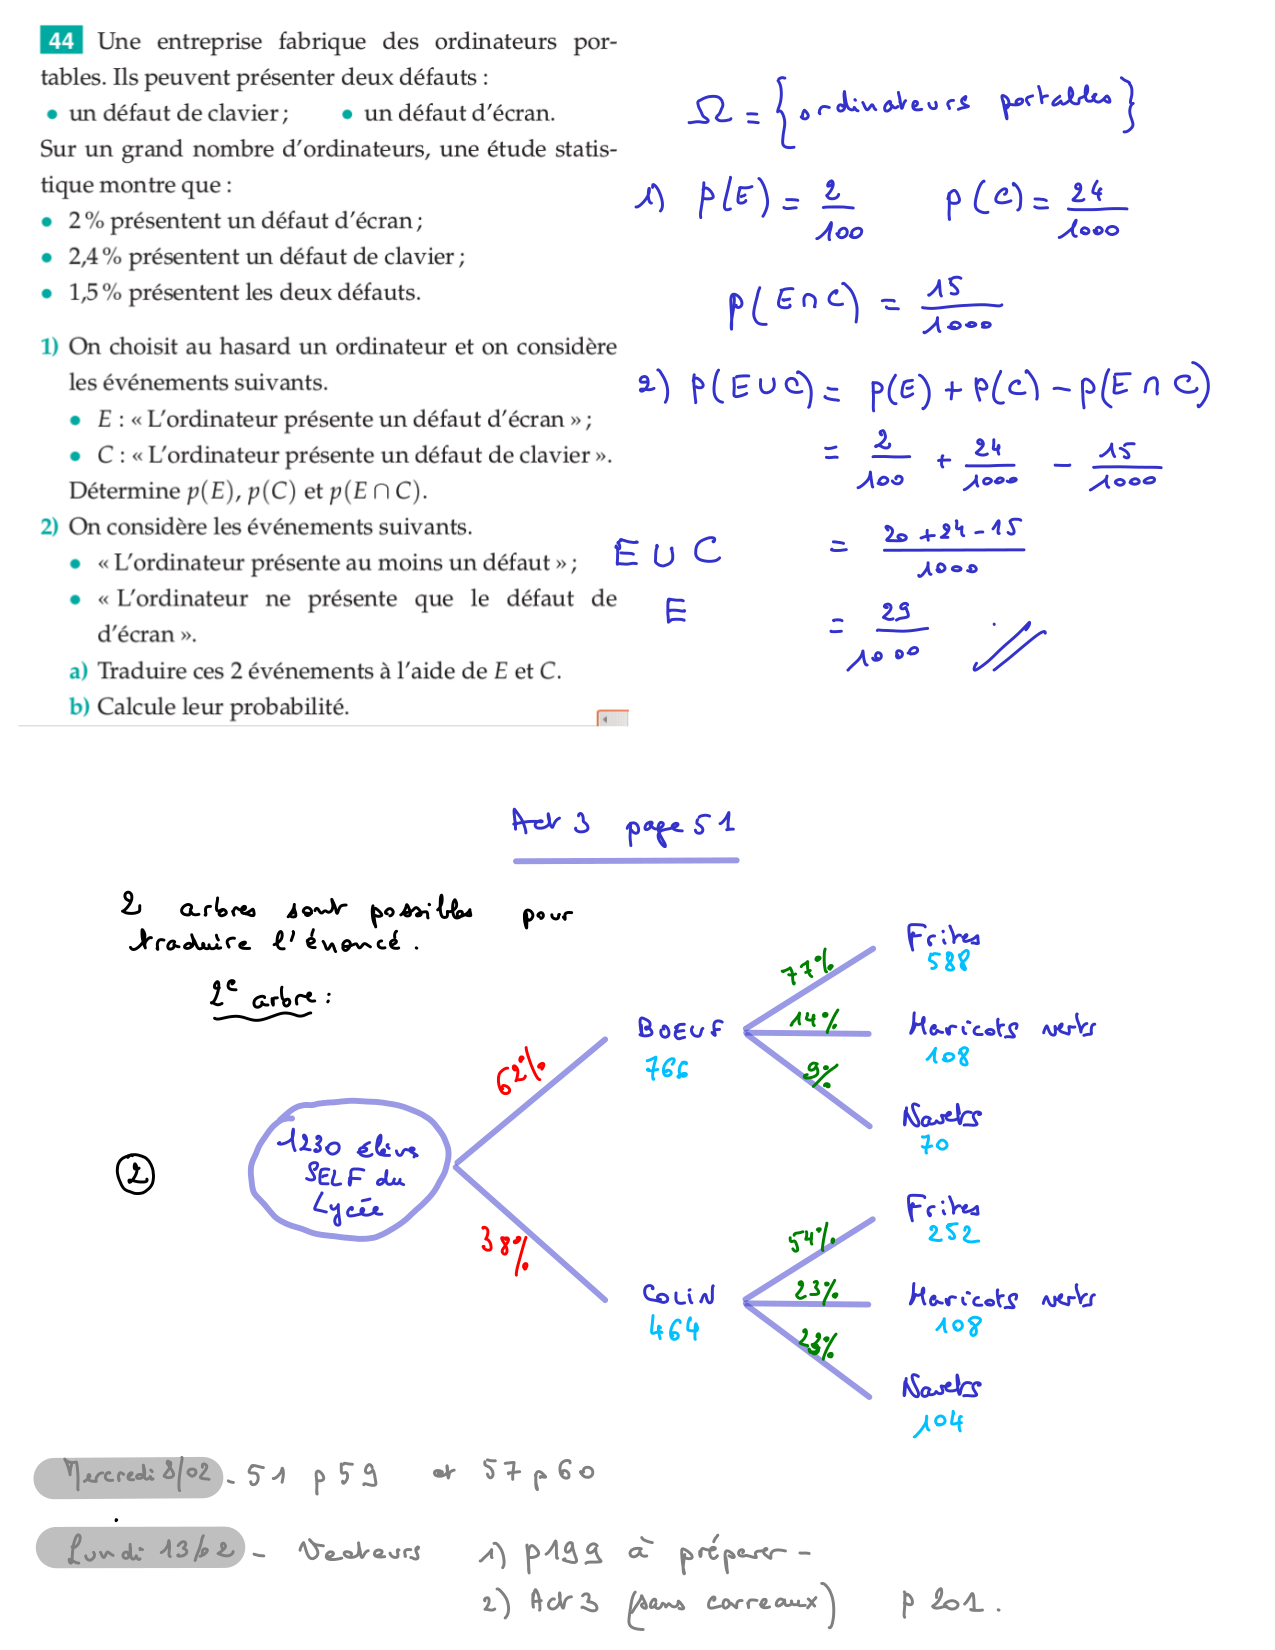 44 Une entreprise fabrique des ordinateurs por-
tables. Ils peuvent présenter deux défauts :
• un défaut de clavier ; • un défaut d'écran.
Sur un grand nombre d'ordinateurs, une étude statis-
tique montre que :
• 2 % présentent un défaut d'écran ;
• 2,4 % présentent un défaut de clavier ;
• 1,5 % présentent les deux défauts.
1) On choisit au hasard un ordinateur et on considère
les événements suivants.
• E : « L'ordinateur présente un défaut d'écran » ;
• C : « L'ordinateur présente un défaut de clavier ».
Détermine p(E), p(C) et p(E ∩ C).
2) On considère les événements suivants.
• « L'ordinateur présente au moins un défaut » ;
• « L'ordinateur ne présente que le défaut de
d'écran ».
a) Traduire ces 2 événements à l'aide de E et C.
b) Calcule leur probabilité.
Ω = {ordinateurs portables}
1) p(E) = 2/100 p(C) = 24/1000
p(E ∩ C) = 15/1000
2) p(E ∪ C) = p(E) + p(C) − p(E ∩ C)
= 2/100 + 24/1000 − 15/1000
E ∪ C = (20 + 24 − 15)/1000
E = 29/1000
Act 3 page 51
2 arbres sont possibles pour
traduire l'énoncé.
2e arbre :
2
1230 élèves
SELF du
Lycée
62%
BOEUF
766
77%
Frites
588
14%
Haricots verts
108
9%
Navets
70
38%
COLIN
464
54%
Frites
252
23%
Haricots verts
108
23%
Navets
104
Mercredi 8/02 - 51 p 59 et 57 p 60
Lundi 13/02 - Vecteurs 1) p199 à préparer -
2) Act 3 (sans carreaux) p 201.